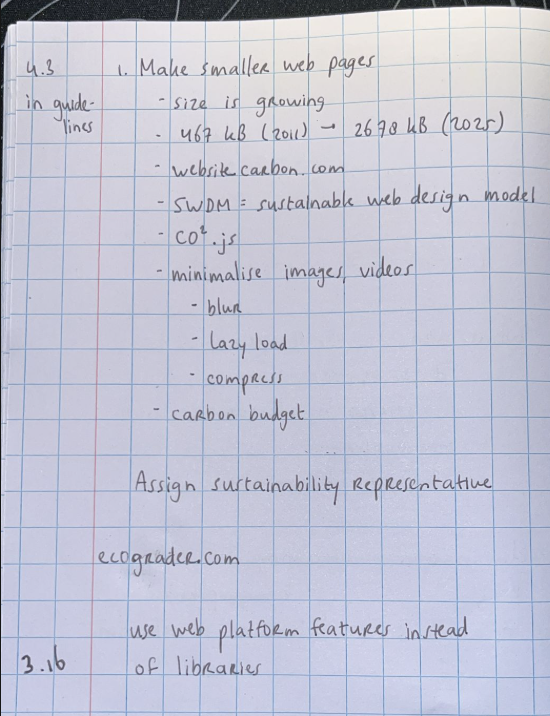 4.3 1. Make smaller web pages
in guide- - size is growing
lines - 467 kB (2011) → 2678 kB (2025)
- websitecarbon.com
- SWDM = sustainable web design model
- CO².js
- minimalise images, videos
- blur
- lazy load
- compress
- carbon budget
Assign sustainability representative
ecograder.com
use web platform features instead
3.16 of libraries